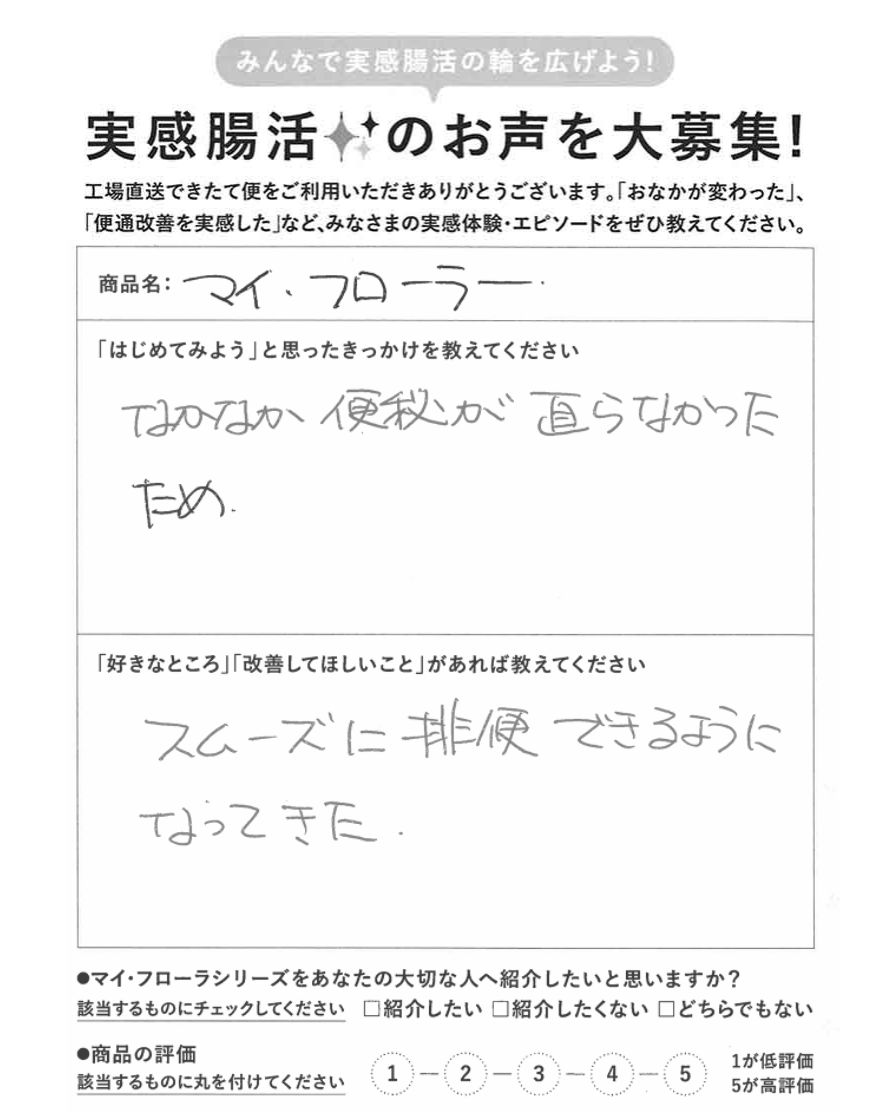 みんなで実感腸活の輪を広げよう!
実感腸活のお声を大募集!
工場直送できたて便をご利用いただきありがとうございます。「おなかが変わった」、
「便通改善を実感した」など、みなさまの実感体験・エピソードをぜひ教えてください。
商品名: マイ・フローラー
「はじめてみよう」と思ったきっかけを教えてください
なかなか便秘が直らなかった
ため.
「好きなところ」「改善してほしいこと」があれば教えてください
スムーズに排便できるように
なってきた.
●マイ・フローラシリーズをあなたの大切な人へ紹介したいと思いますか?
該当するものにチェックしてください □紹介したい □紹介したくない □どちらでもない
●商品の評価
該当するものに丸を付けてください
1 — 2 — 3 — 4 — 5
1が低評価
5が高評価